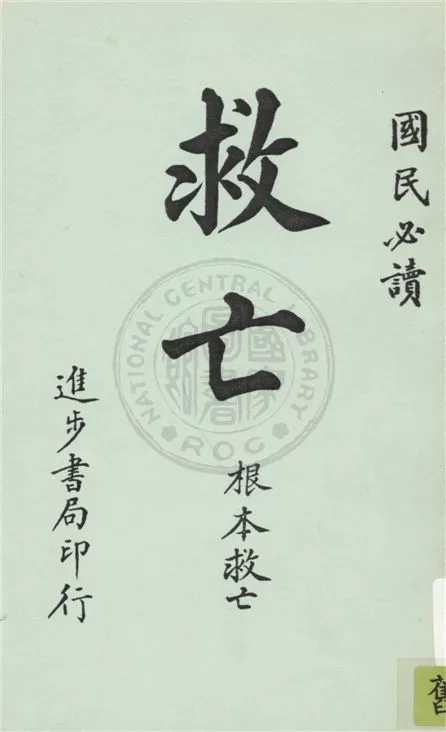 國民必讀
救亡
根本救亡
進步書局印行
NATIONAL CENTRAL LIBRARY
ROC
舊